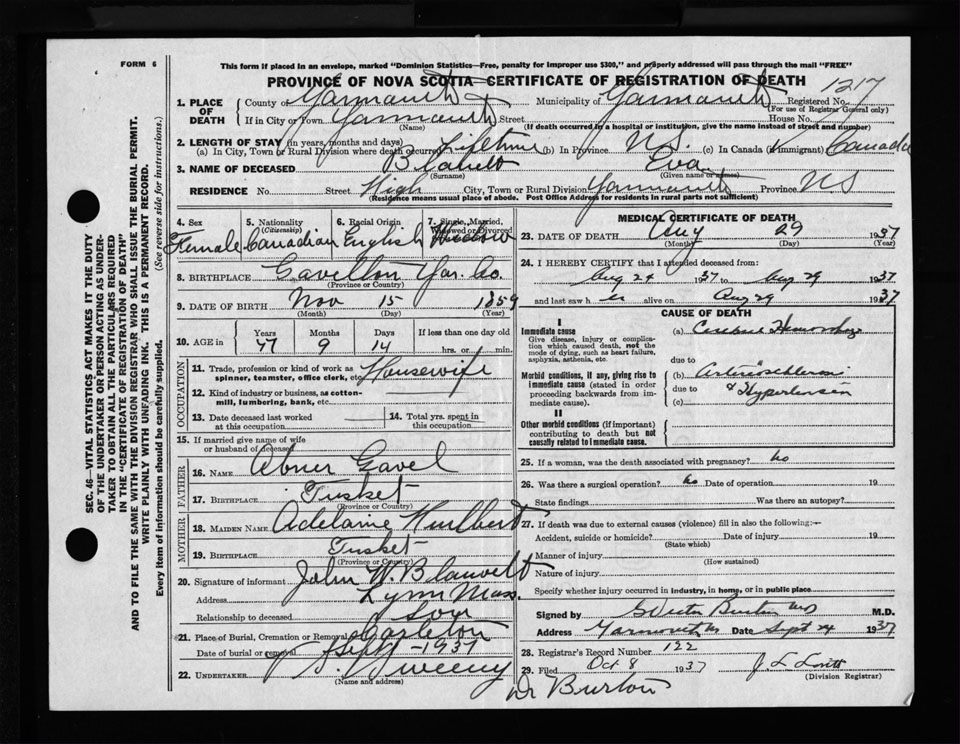 FORM 6
This form if placed in an envelope, marked "Dominion Statistics—Free, penalty for improper use $300," and properly addressed will pass through the mail "FREE"
PROVINCE OF NOVA SCOTIA—CERTIFICATE OF REGISTRATION OF DEATH
1217
1. PLACE OF DEATH County of Yarmouth Municipality of Yarmouth Registered No.
(For use of Registrar General only)
If in City or Town Yarmouth Street House No.
(Name) (If death occurred in a hospital or institution, give the name instead of street and number)
2. LENGTH OF STAY (in years, months and days)
(a) In City, Town or Rural Division where death occurred Lifetime (b) In Province N.S. (c) In Canada (if immigrant) Canada
3. NAME OF DECEASED Blauvelt Eva
(Surname) (Given name or names)
RESIDENCE No. Street High City, Town or Rural Division Yarmouth Province NS
(Residence means usual place of abode. Post Office Address for residents in rural parts not sufficient)
4. Sex 5. Nationality (Citizenship) 6. Racial Origin 7. Single, Married, Widowed or Divorced
Female Canadian English Widow
8. BIRTHPLACE Gavelton Yar. Co.
(Province or Country)
9. DATE OF BIRTH Nov 15 1859
(Month) (Day) (Year)
10. AGE in Years Months Days If less than one day old
77 9 14 hrs. or min.
OCCUPATION
11. Trade, profession or kind of work as spinner, teamster, office clerk, etc. Housewife
12. Kind of industry or business, as cotton-mill, lumbering, bank, etc.
13. Date deceased last worked at this occupation
14. Total yrs. spent in this occupation
15. If married give name of wife or husband of deceased
FATHER
16. NAME Abner Gavel
17. BIRTHPLACE Tusket
(Province or Country)
MOTHER
18. MAIDEN NAME Adelaine Hurlbert
19. BIRTHPLACE Tusket
(Province or Country)
20. Signature of informant John W. Blauvelt
Address Lynn Mass.
Relationship to deceased Son
21. Place of Burial, Cremation or Removal Carleton
Date of burial or removal Sept 1 - 1937
22. UNDERTAKER Sweeny
(Name and address)
MEDICAL CERTIFICATE OF DEATH
23. DATE OF DEATH Aug 29 1937
(Month) (Day) (Year)
24. I HEREBY CERTIFY that I attended deceased from:
Aug 24 1937 to Aug 29 1937
and last saw h er alive on Aug 29 1937
CAUSE OF DEATH
I
Immediate cause (a) Cerebral Hemorrhage
Give disease, injury or complication which caused death, not the mode of dying, such as heart failure, asphyxia, asthenia, etc.
due to
Morbid conditions, if any, giving rise to immediate cause (stated in order proceeding backwards from immediate cause).
(b) Arteriosclerosis
due to & Hypertension
(c)
II
Other morbid conditions (if important) contributing to death but not causally related to immediate cause.
25. If a woman, was the death associated with pregnancy? No
26. Was there a surgical operation? No Date of operation 19
State findings Was there an autopsy?
27. If death was due to external causes (violence) fill in also the following:—
Accident, suicide or homicide? Date of injury 19
(State which)
Manner of injury
(How sustained)
Nature of injury
Specify whether injury occurred in industry, in home, or in public place
Signed by Burton M.D.
Address Yarmouth NS Date Sept 24 1937
28. Registrar's Record Number 122
29. Filed Oct 8 1937 J L Lovitt
(Division Registrar)
Dr Burton
SEC. 46—VITAL STATISTICS ACT MAKES IT THE DUTY
OF THE UNDERTAKER OR PERSON ACTING AS UNDER-
TAKER TO OBTAIN ALL THE PARTICULARS REQUIRED
IN THE "CERTIFICATE OF REGISTRATION OF DEATH"
AND TO FILE THE SAME WITH THE DIVISION REGISTRAR WHO SHALL ISSUE THE BURIAL PERMIT.
WRITE PLAINLY WITH UNFADING INK. THIS IS A PERMANENT RECORD.
Every item of information should be carefully supplied. (See reverse side for instructions.)